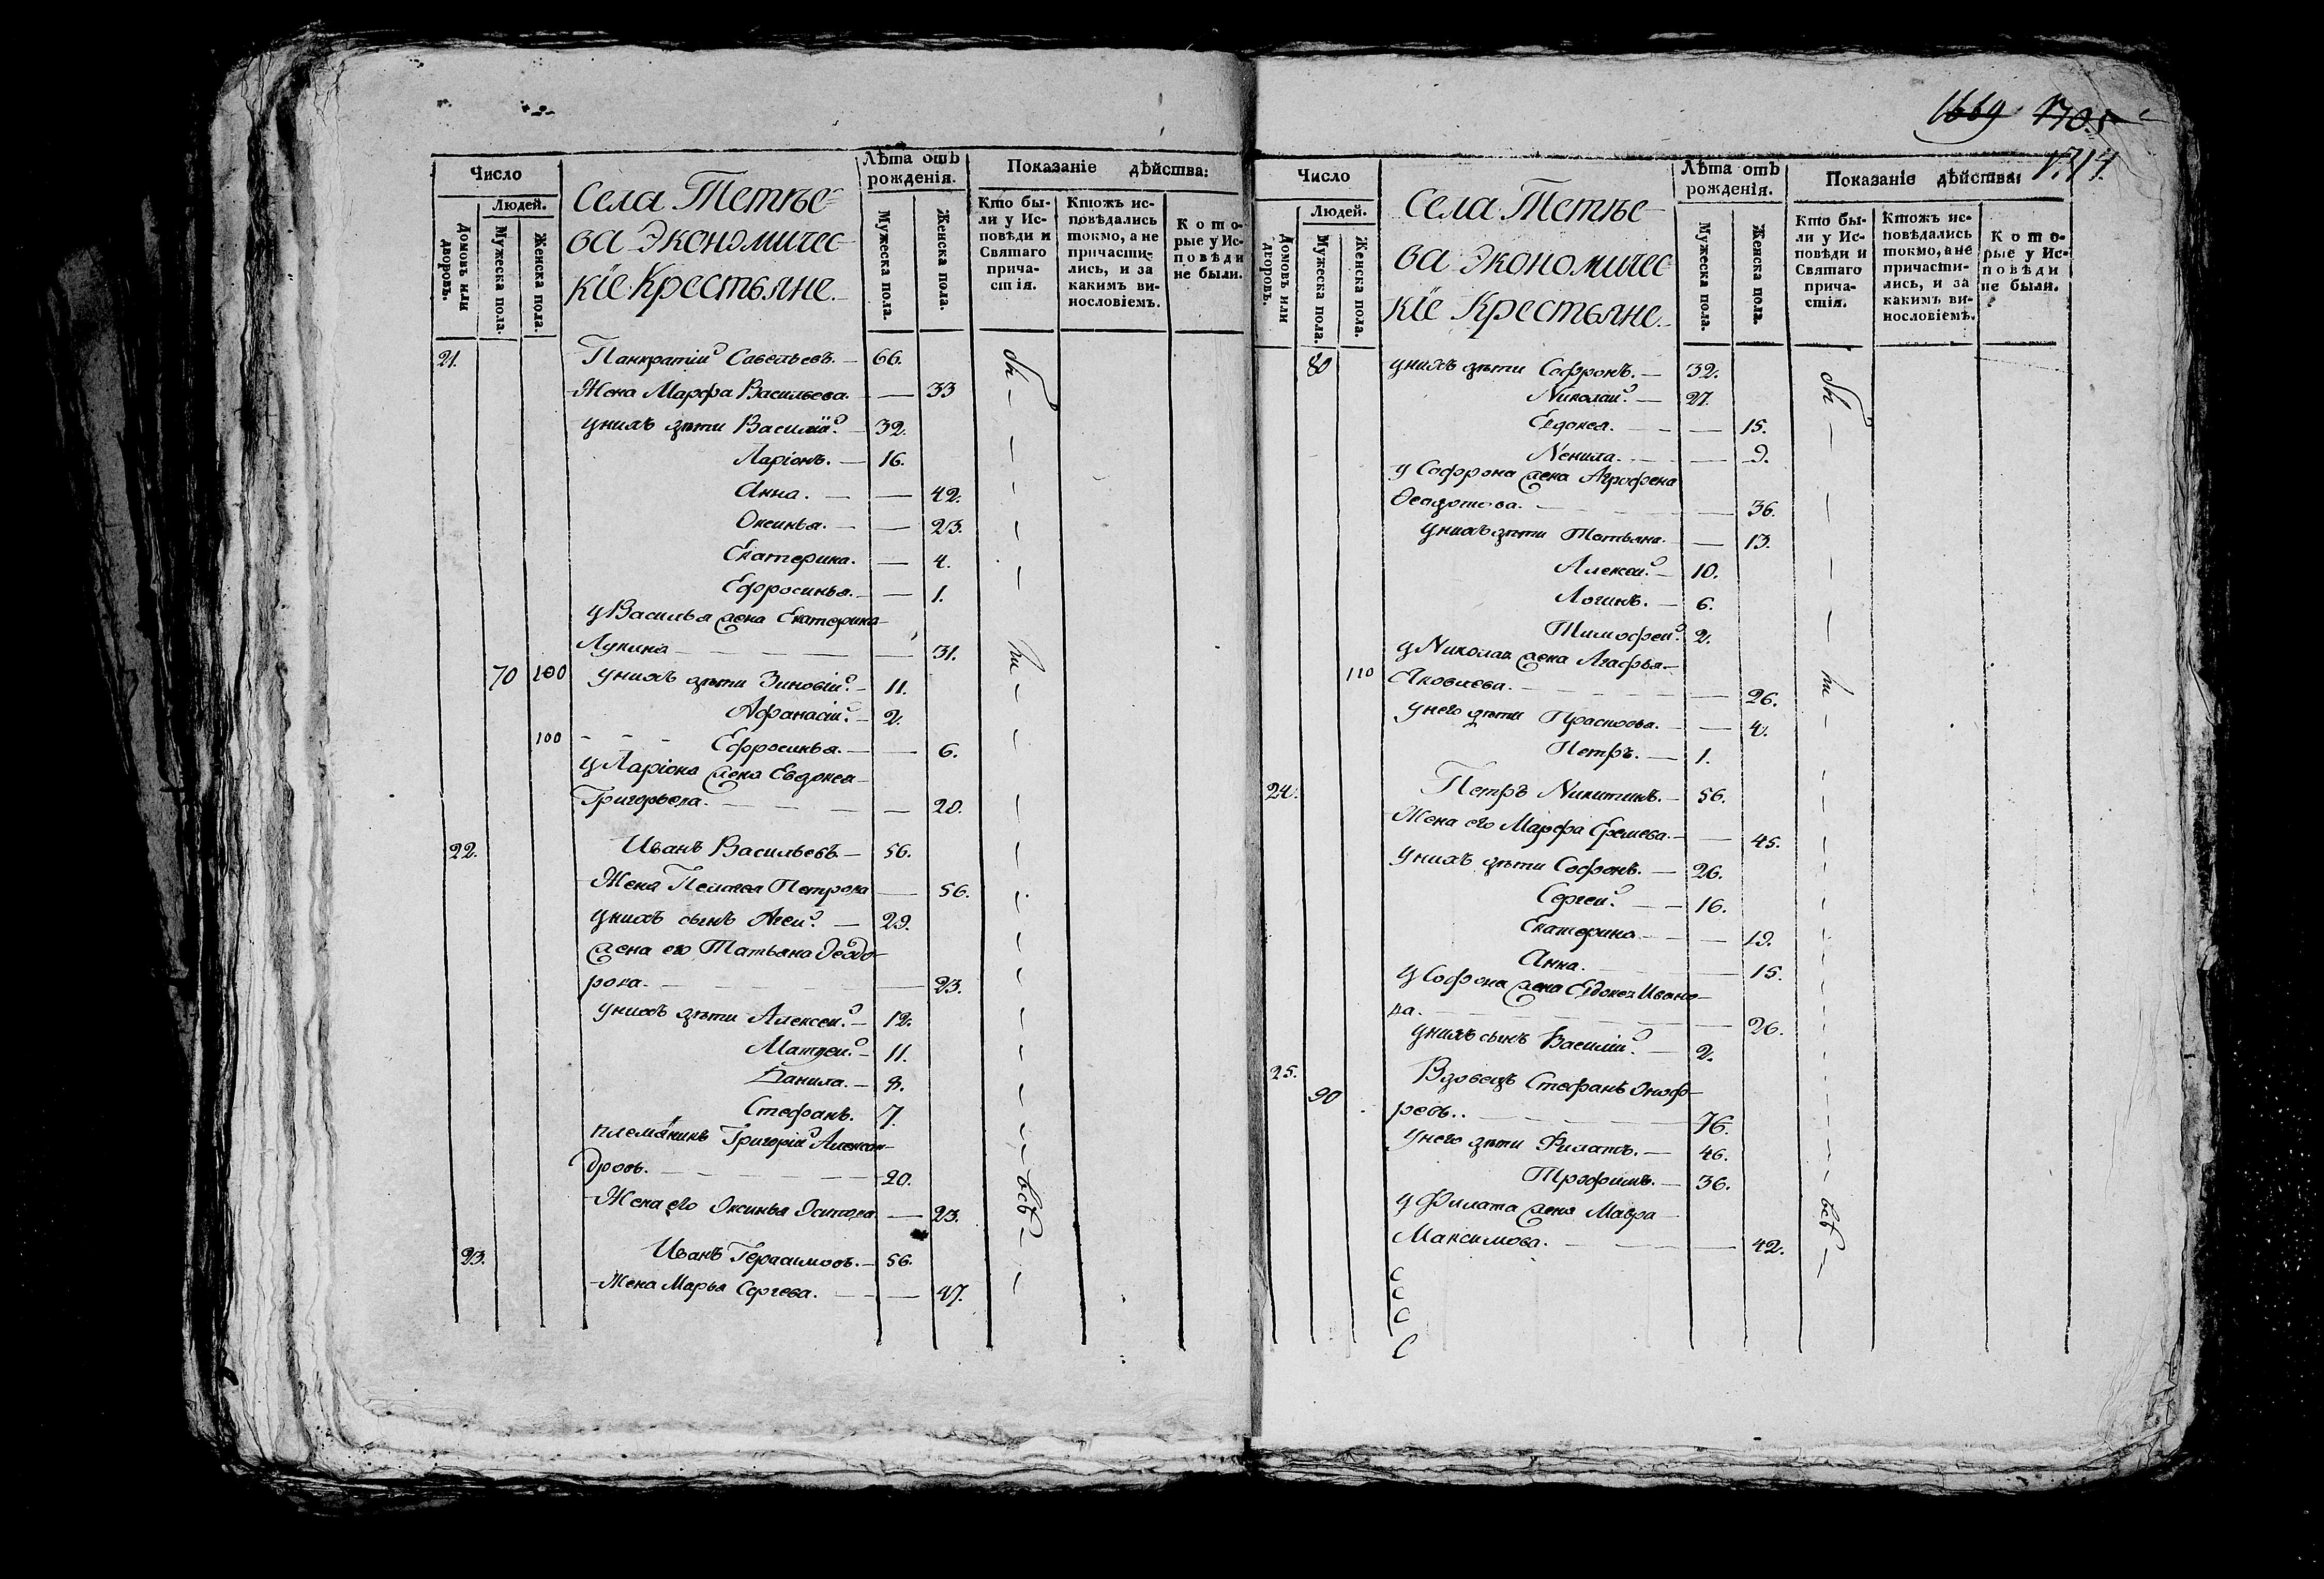 1669 1705
1714.
Число
Людей.
Домовъ или дворовъ.
Мужеска пола.
Женска пола.
Села Тетѣе-
ва Экономичес-
кїе Крестьяне.
Лѣта отъ рожденія.
Мужеска пола.
Женска пола.
Показаніе дѣйства:
Кто бы-
ли у Ис-
повѣди и
Святаго
прича-
стія.
Ктожъ ис-
повѣдались
токмо, а не
причасти-
лись, и за
какимъ ви-
нословіемъ.
Кото-
рые у Ис-
повѣди
не были.
21. Панкратіи Савельевъ. — 66.
Жена Марфа Васильева. — 33
у нихъ дѣти Василіи. — 32.
Ларіонъ. — 16.
Анна. — — 42.
Оксинья. — — 23.
Екатерина. — 4.
Ефросинья. — — 1.
у Василья жена Екатерина
Лукина — — — 31.
70 100 у нихъ дѣти Зиновіи. — 11.
Афанасіи. — 2.
100 - - - Ефросинья. — — 6.
у Ларіона жена Евдокея
Григорьева. — — — 20.
22. Иванъ Васильевъ — 56.
Жена Пелагея Петрова — 56.
у нихъ сынъ Агеи. — 29.
жена его Татьяна Ѳеодо-
рова. — — — 23.
у нихъ дѣти Алексеи. — 12.
Матвеи. — 11.
Данила. — 8.
Стефанъ. 7.
племянникъ Григоріи Алексан-
дровъ. — — — 20.
Жена его Оксинья Осипова. — 23.
23. Иванъ Герасимовъ. — 56.
Жена Марья Сергева. — — 47.
Были
всѣ
Число
Людей.
Домовъ или дворовъ.
Мужеска пола.
Женска пола.
Села Тетѣе-
ва Экономичес-
кїе Крестьяне.
Лѣта отъ рожденія.
Мужеска пола.
Женска пола.
Показаніе дѣйства:
Кто бы-
ли у Ис-
повѣди и
Святаго
прича-
стія.
Ктожъ ис-
повѣдались
токмо, а не
причасти-
лись, и за
какимъ ви-
нословіемъ.
Кото-
рые у Ис-
повѣди
не были.
80 у нихъ дѣти Софронъ. — 32.
Николаи. — 27.
Евдокея. — — 15.
Ненила. — — 9.
у Софрона жена Агрофена
Ѳеодотова. — — — 36.
у нихъ дѣти Татьяна. — 13.
Алексеи. — 10.
Логинъ. — 6.
Тимофеи. 2.
у Николая жена Агафья
110 Яковлева. — — — 26.
у него дѣти Прасковья. — — 4.
Петръ. — 1.
24. Петръ Никитинъ. — 56.
Жена его Марфа Еремева. — — 45.
у нихъ дѣти Софонъ. — 26.
Сергеи. — 16.
Екатерина — — 19.
Анна. — — 15.
у Софона жена Евдокея Ивано-
ва. — — — 26.
у нихъ сынъ Василіи. — 2.
25. Вдовецъ Стефанъ Оноф-
90 ревъ. — — — 76.
у него дѣти Филатъ. — 46.
Трофимъ. — 36.
у Филата жена Мавра
Максимова. — — — 42.
Были
всѣ